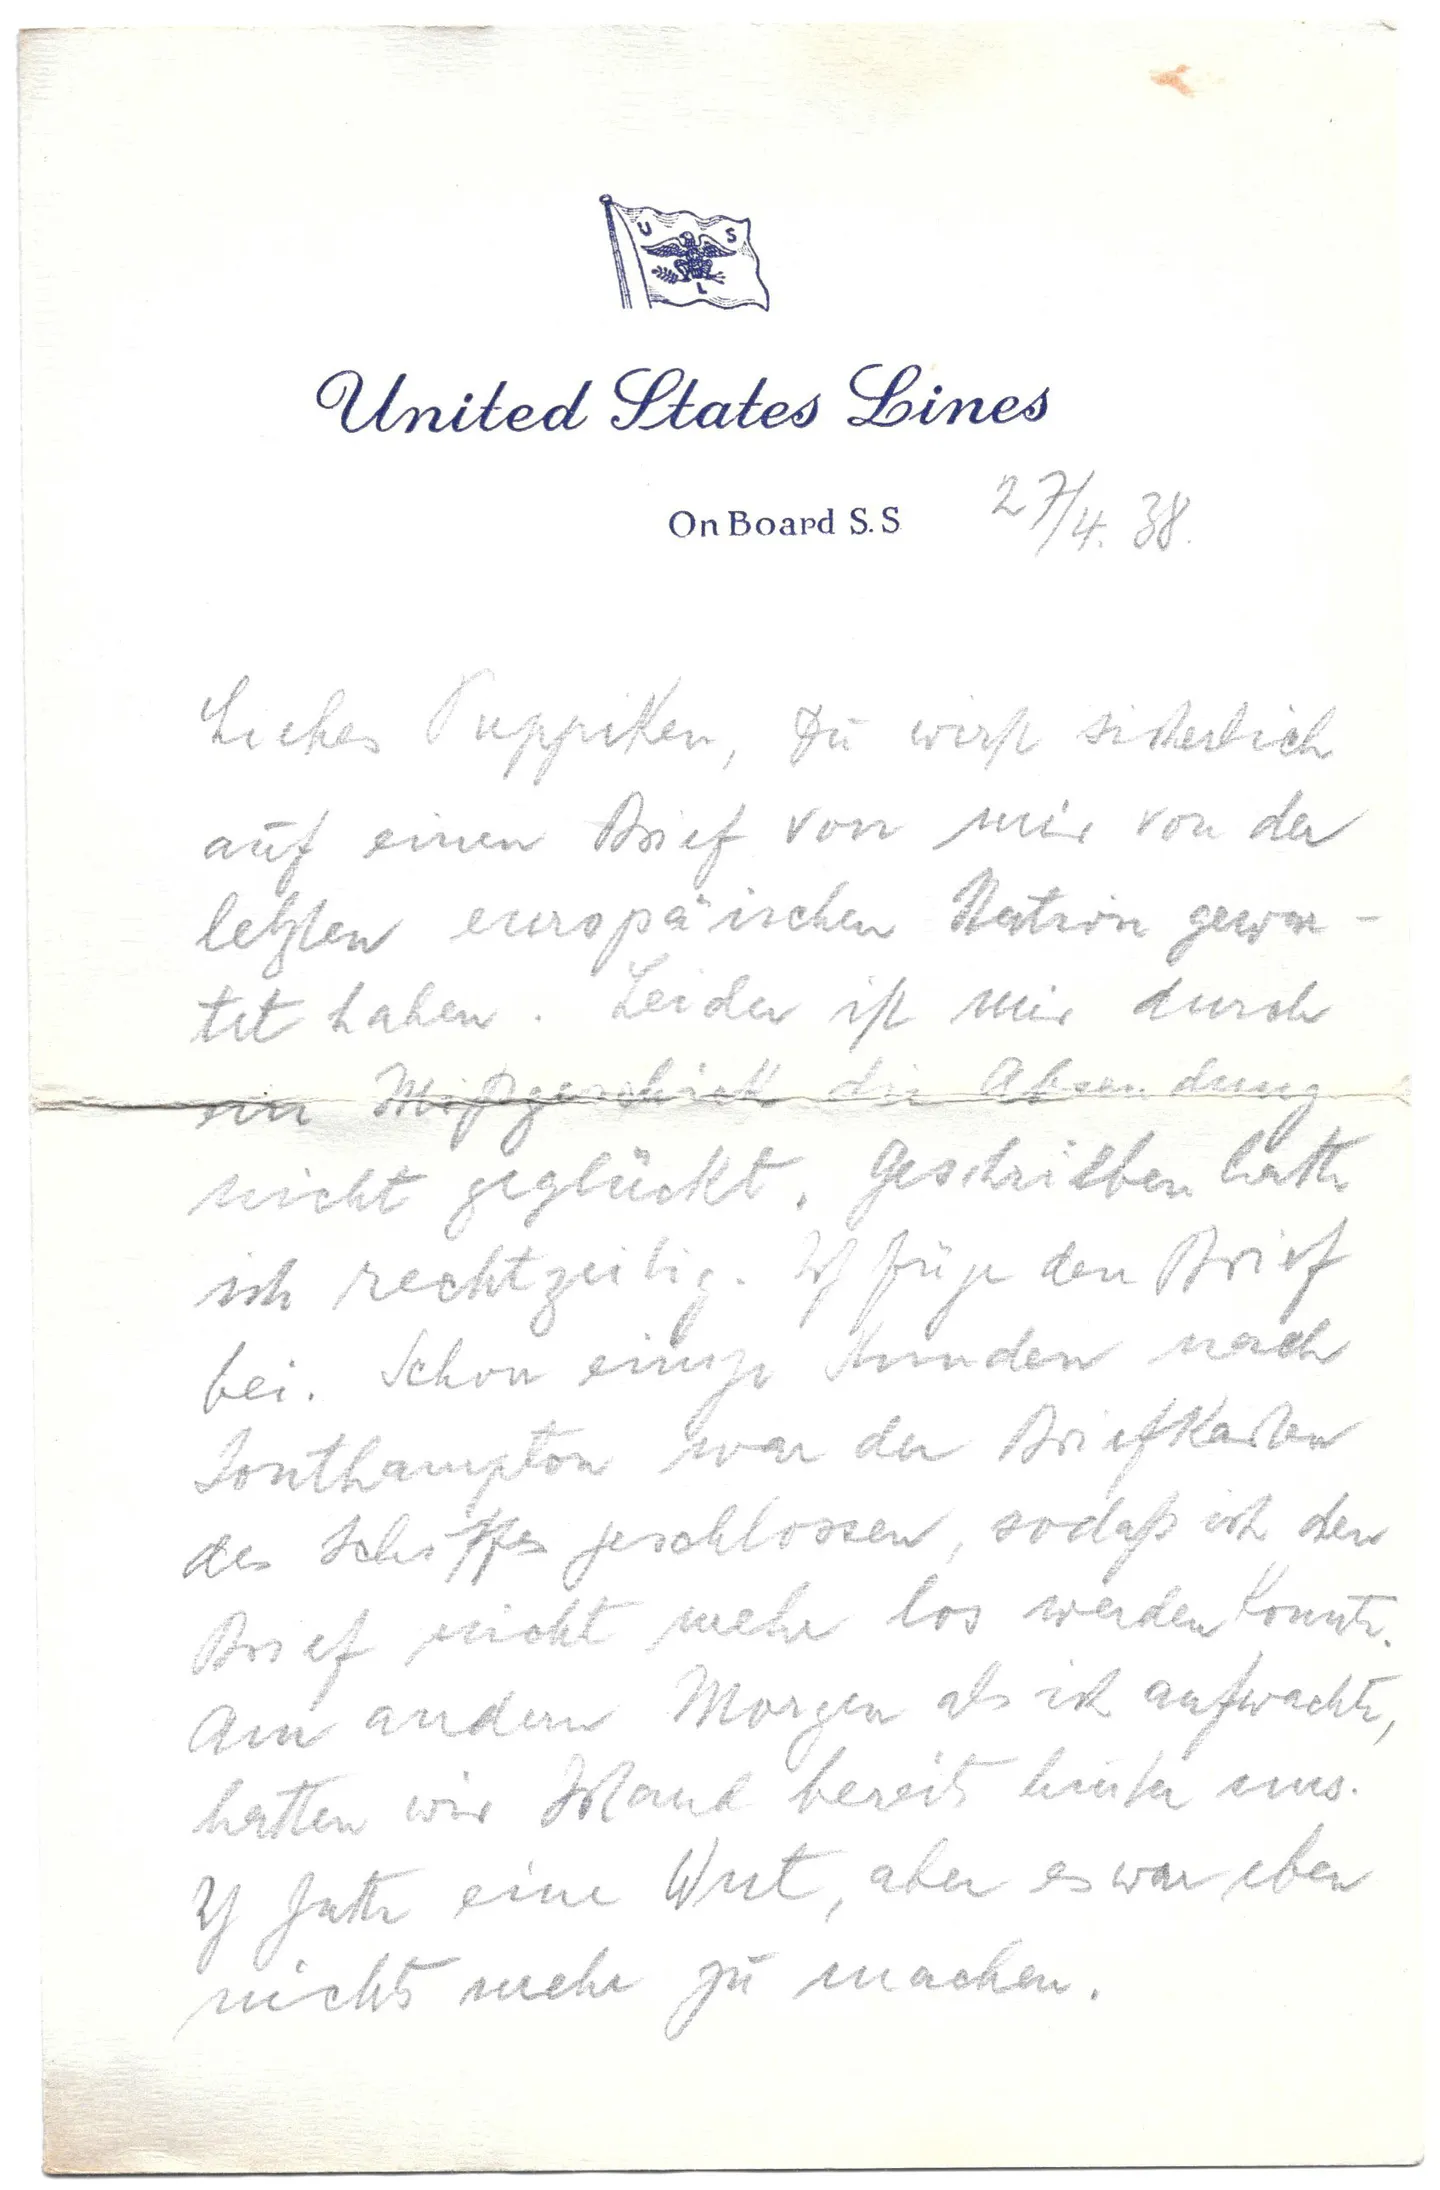 U S L
United States Lines
On Board S.S
27/4. 38.
Liebes Puppiken, Du wirst sicherlich
auf einen Brief von mir von der
letzten europäischen Station gewar-
tet haben. Leider ist mir durch
ein Mißgeschick die Absendung
nicht geglückt. Geschrieben hatte
ich rechtzeitig. Ich füge den Brief
bei. Schon einige Stunden nach
Southampton war der Briefkasten
des Schiffes geschlossen, sodaß ich den
Brief nicht mehr los werden konnte.
Am andern Morgen als ich aufwachte,
hatten wir Irland bereits hinter uns.
Ich hatte eine Wut, aber es war eben
nichts mehr zu machen.